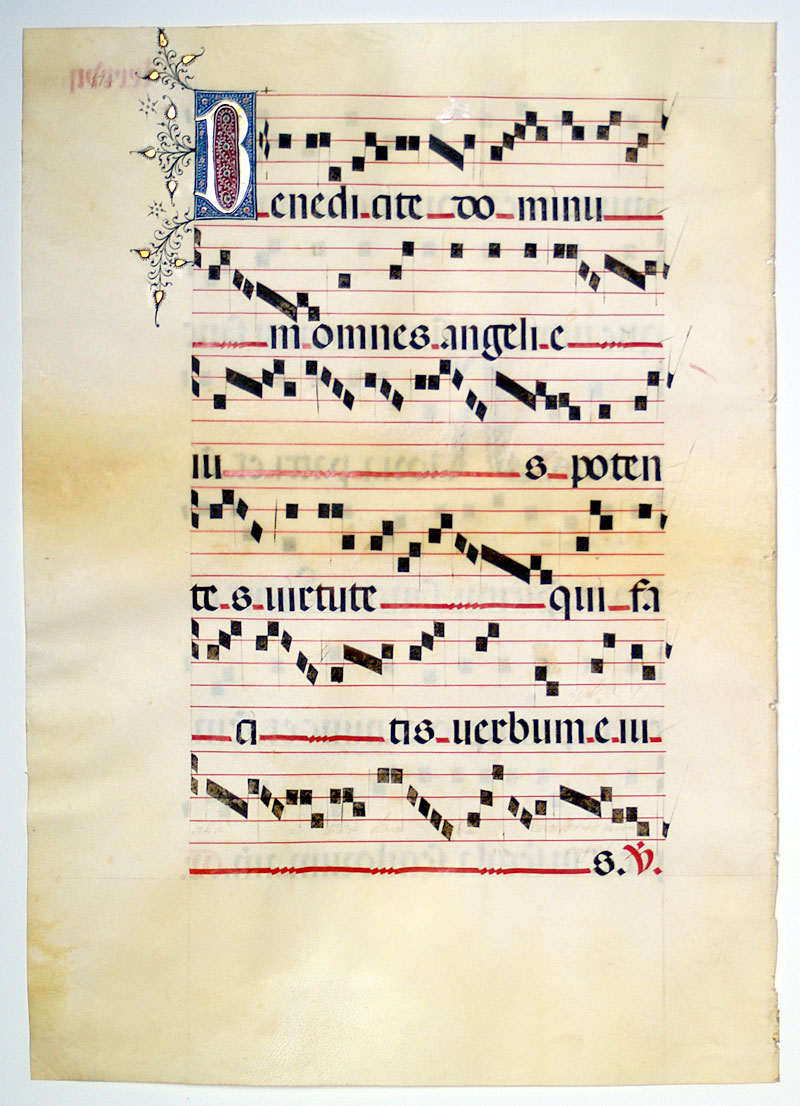 Benedicite do minu
m omnes angeli e
iu s poten
te s uirtute qui fa
ci tis uerbum e iu
s. V.